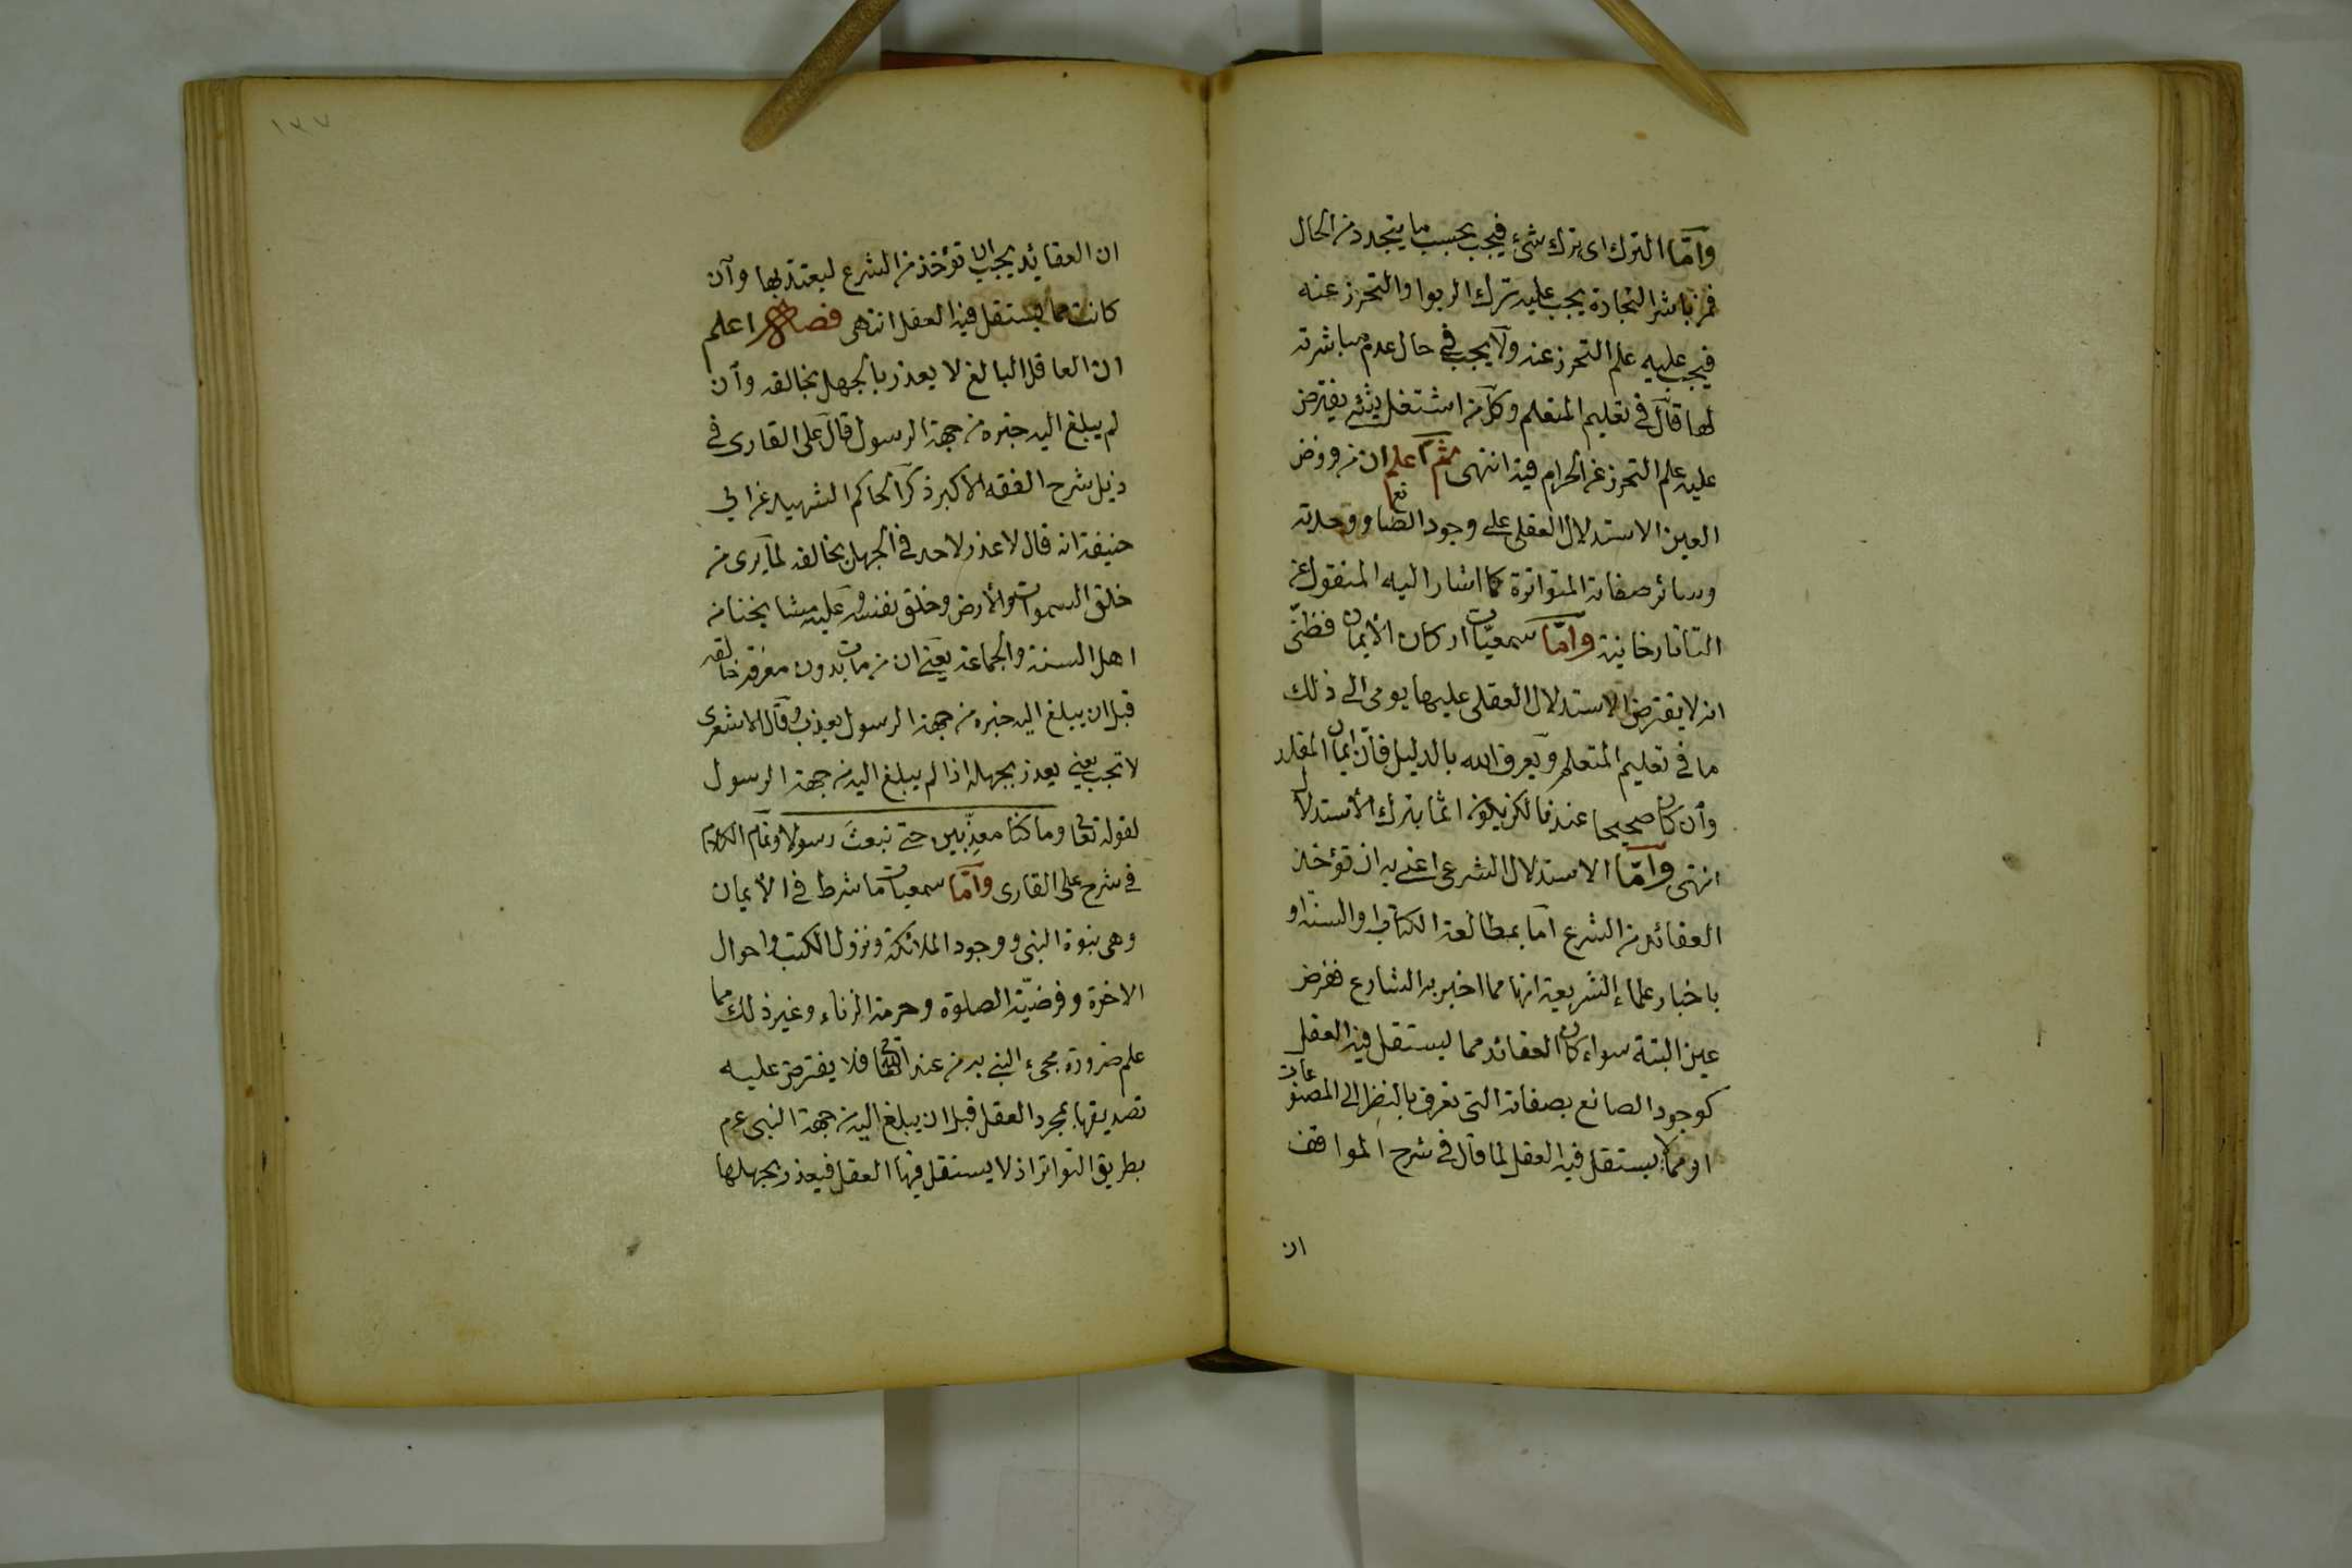 وأما الترك اى ترك شئ فيجب بحسب ما يتجدد من الحال
فمن باشر التجارة يجب عليه ترك الربوا والتحرز عنه
فيجب عليه علم التحرز عنه ولا يجب في حال عدم مباشرته
لها قال في تعليم المتعلم وكل من اشتغل بشئ يفترض
عليه علم التحرز عن الحرام فيه انتهى ثم اعلم ان من فروض
العين الاستدلال العقلى على وجود الصانع ووحدته
وسائر صفاته المتواترة كما اشار اليه المنقول عن
التاتارخانية وأما سمعيات اركان الأيمان فظنى
انه لا يفترض الاستدلال العقلى عليها يومى الى ذلك
ما فى تعليم المتعلم ويعرف الله بالدليل فان ايمان المقلد
وأن كان صحيحا عندنا لكن يكون اثما بترك الأستدلال
انتهى وأما الاستدلال الشرعى اعنى به ان تؤخذ
العقائد من الشرع اما بمطالعة الكتاب والسنة او
باخبار علماء الشريعة انها مما اخبر به الشارع ففرض
عين البتة سواء كان العقائد مما يستقل فيه العقل
كوجود الصانع بصفاته التى تعرف بالنظر الى المصنوعات
او مما لا يستقل فيه العقل لما قال فى شرح المواقف
ان
١٣٧
ان العقائد يجب ان تؤخذ من الشرع ليعتد بها وأن
كانت مما يستقل فيه العقل انتهى فصل اعلم
ان العاقل البالغ لا يعذر بالجهل بخالقه وأن
لم يبلغ اليه خبره من جهة الرسول قال على القارى فى
ذيل شرح الفقه الاكبر ذكر الحاكم الشهيد عن ابي
حنيفة انه قال لا عذر لاحد فى الجهل بخالقه لما يرى من
خلق السموات والأرض وخلق نفسه وعليه مشايخنا من
اهل السنة والجماعة يعنى ان من مات بدون معرفة خالقه
قبل ان يبلغ اليه خبره من جهة الرسول يعذب وقال الاشعرى
لا تجب يعنى يعذر بجهله اذا لم يبلغ اليه من جهة الرسول
لقوله تعا وما كنا معذبين حتى نبعث رسولا وتمام الكلام
فى شرح على القارى وأما سمعيات ما شرط فى الأيمان
وهى نبوة النبى ووجود الملائكة ونزول الكتب واحوال
الاخرة وفرضية الصلوة وحرمة الزناء وغير ذلك مما
علم ضرورة مجىء النبى به من عند الله تعا فلا يفترض عليه
تصديقها بمجرد العقل قبل ان يبلغ اليه من جهة النبى عم
بطريق التواتر اذ لا يستقل فيها العقل فيعذر بجهلها